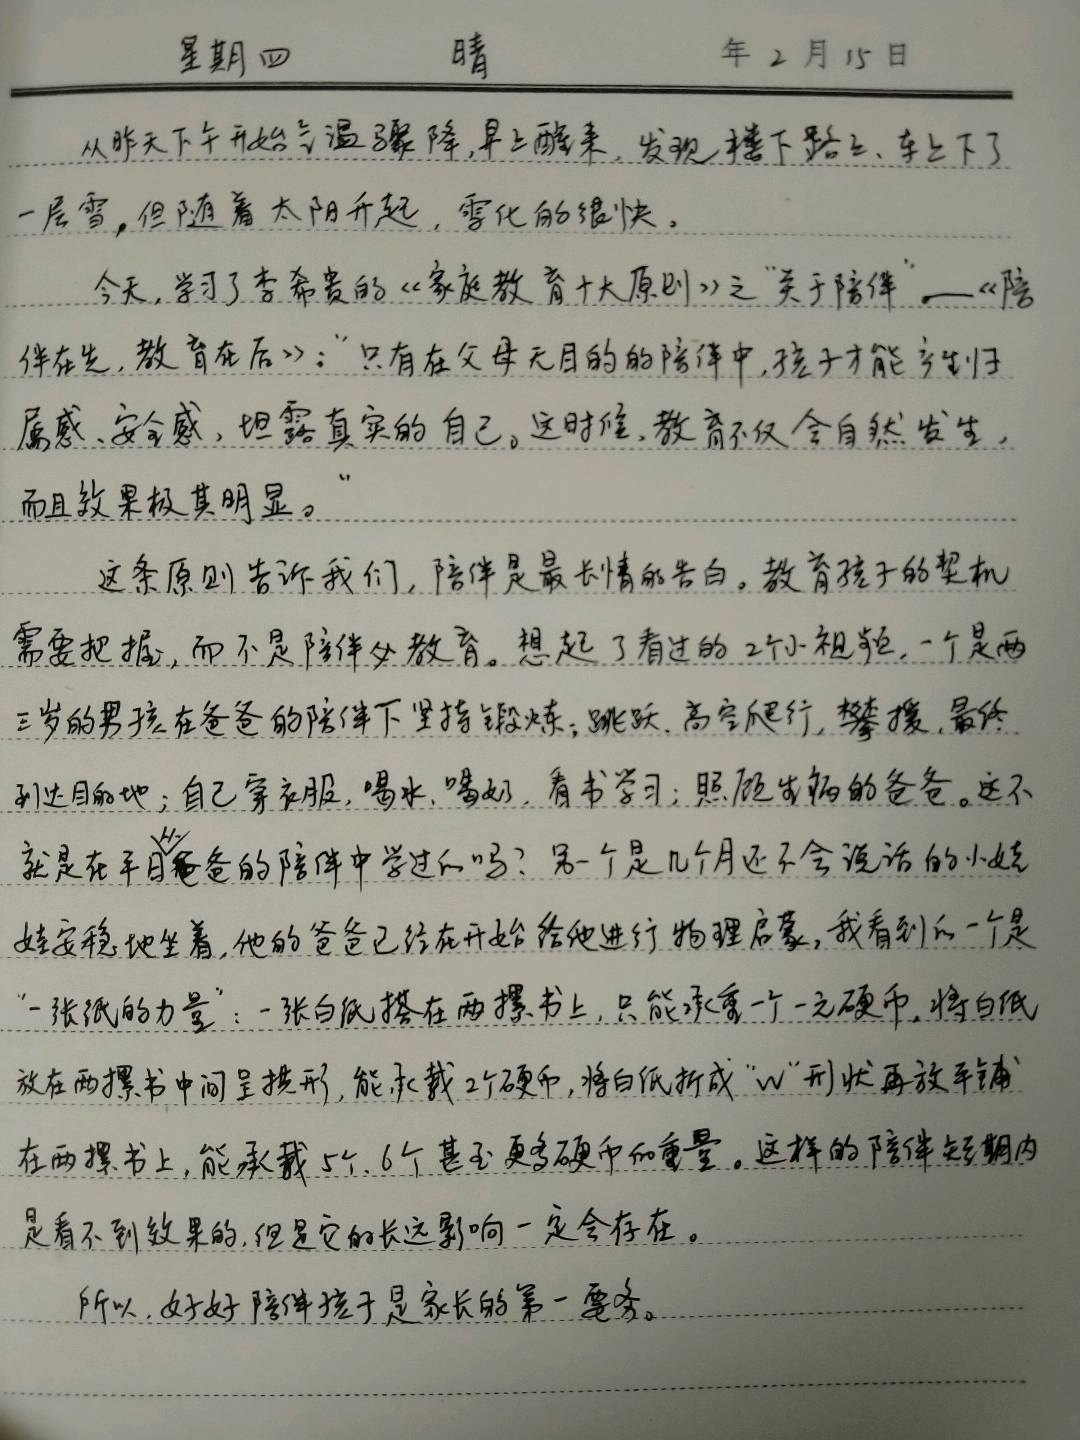 星期四 晴 年2月15日
从昨天下午开始气温骤降,早上醒来,发现楼下路上、车上下了
一层雪,但随着太阳升起,雪化的很快。
今天,学习了李希贵的《家庭教育十大原则》之“关于陪伴”——《陪
伴在先,教育在后》:“只有在父母无目的的陪伴中,孩子才能产生归
属感、安全感,坦露真实的自己。这时候,教育不仅会自然发生,
而且效果极其明显。”
这条原则告诉我们,陪伴是最长情的告白。教育孩子的契机
需要把握,而不是陪伴必教育。想起了看过的2个小视频,一个是两
三岁的男孩在爸爸的陪伴下坚持锻炼;跳跃、高空爬行,攀援,最终
到达目的地;自己穿衣服,喝水、喝奶,看书学习;照顾生病的爸爸。这不
就是在平日爸爸的陪伴中学过的吗?另一个是几个月还不会说话的小娃
娃安稳地坐着,他的爸爸已经在开始给他进行物理启蒙,我看到的一个是
“一张纸的力量”:一张白纸搭在两摞书上,只能承重一个一元硬币,将白纸
放在两摞书中间呈拱形,能承载2个硬币,将白纸折成“W”形状再放平铺
在两摞书上,能承载5个、6个甚至更多硬币的重量。这样的陪伴短期内
是看不到效果的,但是它的长远影响一定会存在。
所以,好好陪伴孩子是家长的第一要务。